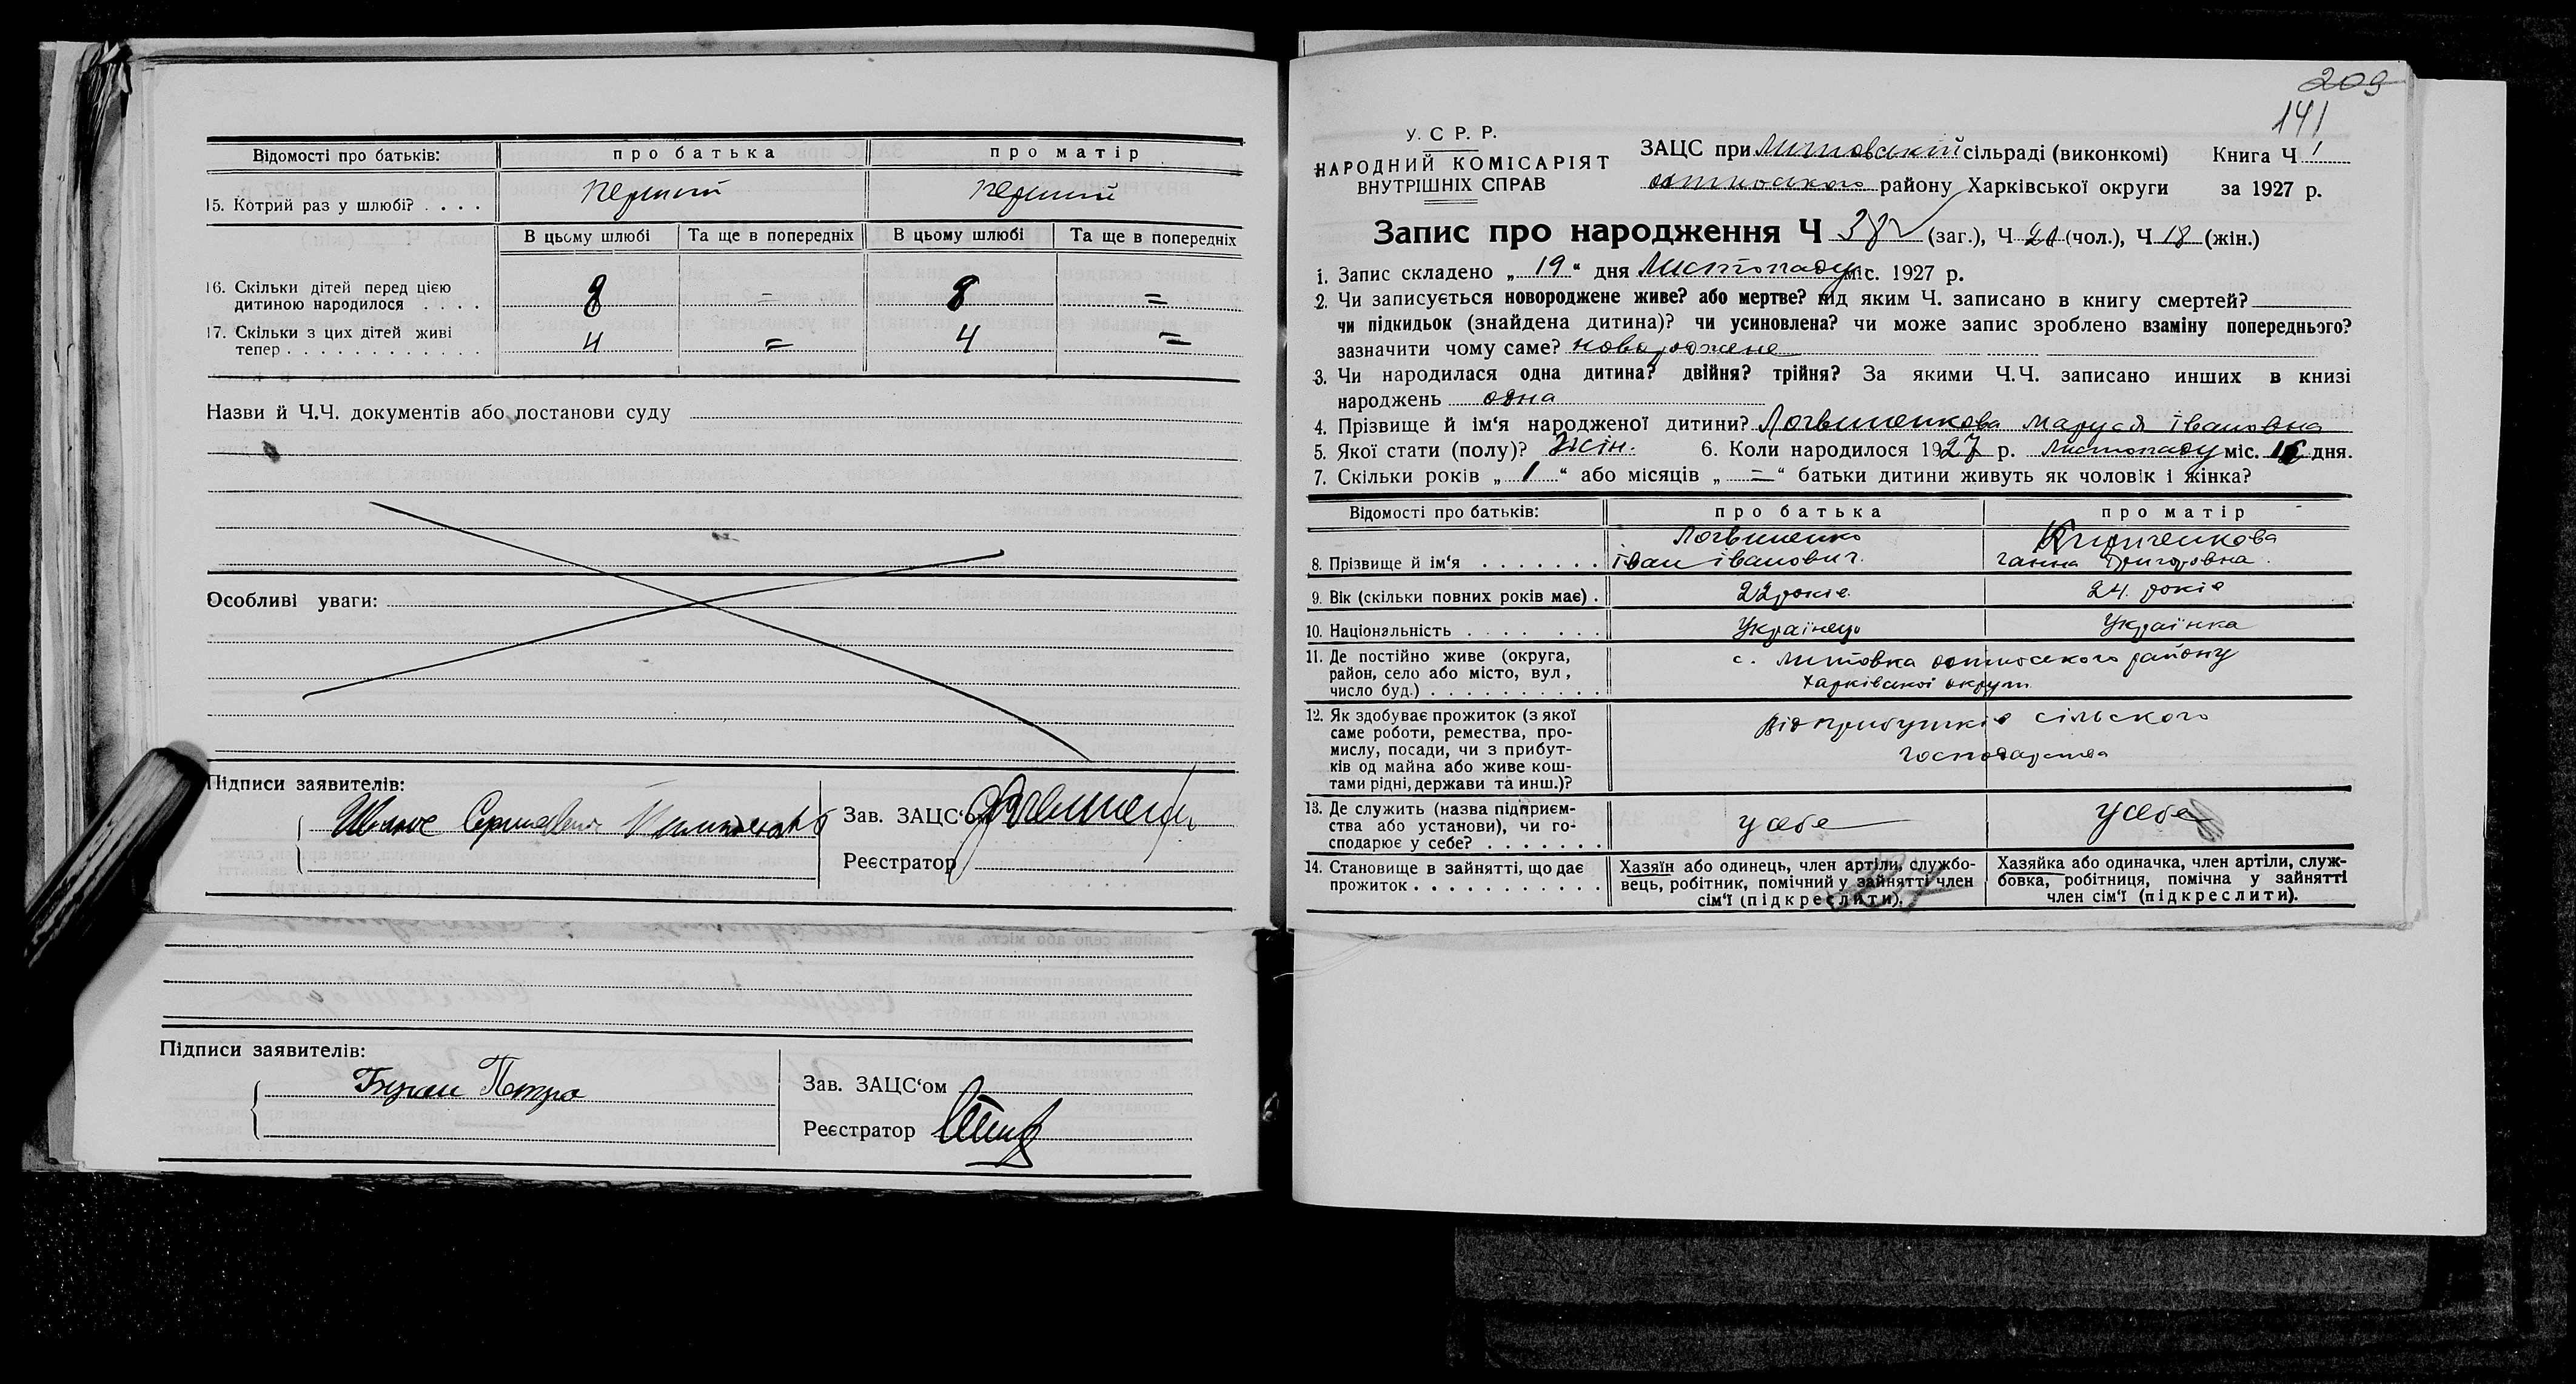 Відомості про батьків: про батька про матір
15. Котрий раз у шлюбі? . . . . перший перший
В цьому шлюбі Та ще в попередніх В цьому шлюбі Та ще в попередніх
16. Скільки дітей перед цією
дитиною народилося . . . . 8 = 8 =
17. Скільки з цих дітей живі
тепер . . . . . . . . . . . . 4 = 4 =
Назви й Ч.Ч. документів або постанови суду
Особливі уваги:
Підписи заявителів:
Зав. ЗАЦС‘ом
Реєстратор
Підписи заявителів:
Петро
Зав. ЗАЦС‘ом
Реєстратор
209
141
У. С. Р. Р.
НАРОДНИЙ КОМІСАРІЯТ
ВНУТРІШНІХ СПРАВ
ЗАЦС при Литовській сільраді (виконкомі) Книга Ч 1
району Харківської округи за 1927 р.
Запис про народження Ч 38 (заг.), Ч 20 (чол.), Ч 18 (жін.)
1. Запис складено „ 19 “ дня Листопаду міс. 1927 р.
2. Чи записується новороджене живе? або мертве? під яким Ч. записано в книгу смертей?
чи підкидьок (знайдена дитина)? чи усиновлена? чи може запис зроблено взаміну попереднього?
зазначити чому саме? новороджене
3. Чи народилася одна дитина? двійня? трійня? За якими Ч.Ч. записано инших в книзі
народжень одна
4. Прізвище й ім‘я народженої дитини? Логвиненкова Маруся Івановна
5. Якої стати (полу)? Жін. 6. Коли народилося 1927 р. Листопаду міс. дня.
7. Скільки років „ 1 “ або місяців „ = “ батьки дитини живуть як чоловік і жінка?
Відомості про батьків: про батька про матір
Логвиненко Кириченкова
8. Прізвище й ім‘я . . . . . . . Іван Іванович. Ганна Григоровна.
9. Вік (скільки повних років має) . 22 років. 24. років
10. Національність . . . . . . . Українець Українка
11. Де постійно живе (округа,
район, село або місто, вул.,
число буд.) . . . . . . . . . .
с. Литовка району
Харківської округи
12. Як здобуває прожиток (з якої
саме роботи, ремества, про-
мислу, посади, чи з прибут-
ків од майна або живе кош-
тами рідні, держави та инш.)?
Від прибутків сільского
господарства
13. Де служить (назва підприєм-
ства або установи), чи го-
сподарює у себе? . . . . . . .
у себе у себе
14. Становище в зайнятті, що дає
прожиток . . . . . . . . . . .
Хазяїн або одинець, член артіли, службо-
вець, робітник, помічний у зайнятті член
сім‘ї (підкреслити).
Хазяйка або одиначка, член артіли, служ-
бовка, робітниця, помічна у зайнятті
член сім‘ї (підкреслити).